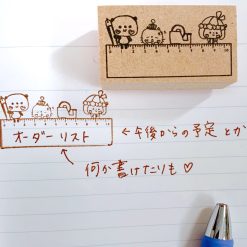 オーダー リスト
←午後からの予定 とか
何か書けたりも♡